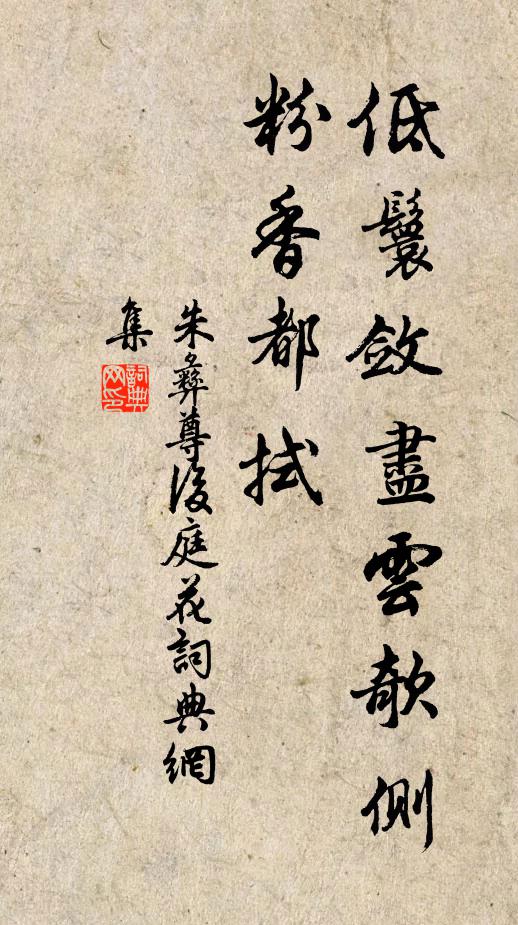 低鬟斂盡雲欹側
粉香都拭
朱彝尊後庭花詞典網
集
詞典網印